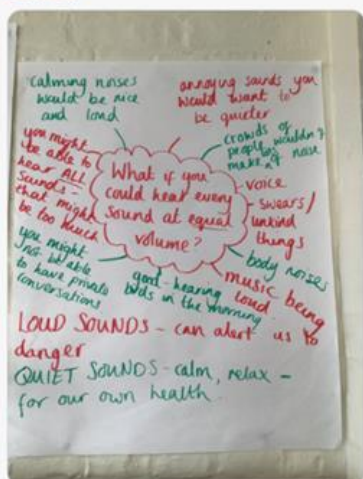 calming noises
would be nice
and loud
annoying sounds you
would want to
be quieter
crowds of
people wouldn't
make as
much noise
you might
be able to
hear ALL
sounds -
that might
be too much
What if you
could hear every
sound at equal
volume?
voice
swears/
unkind
things
body noises
music being
loud
good - hearing
birds in the morning
you might
not be able
to have private
conversations
LOUD SOUNDS - can alert us to
danger
QUIET SOUNDS - calm, relax -
for our own health.